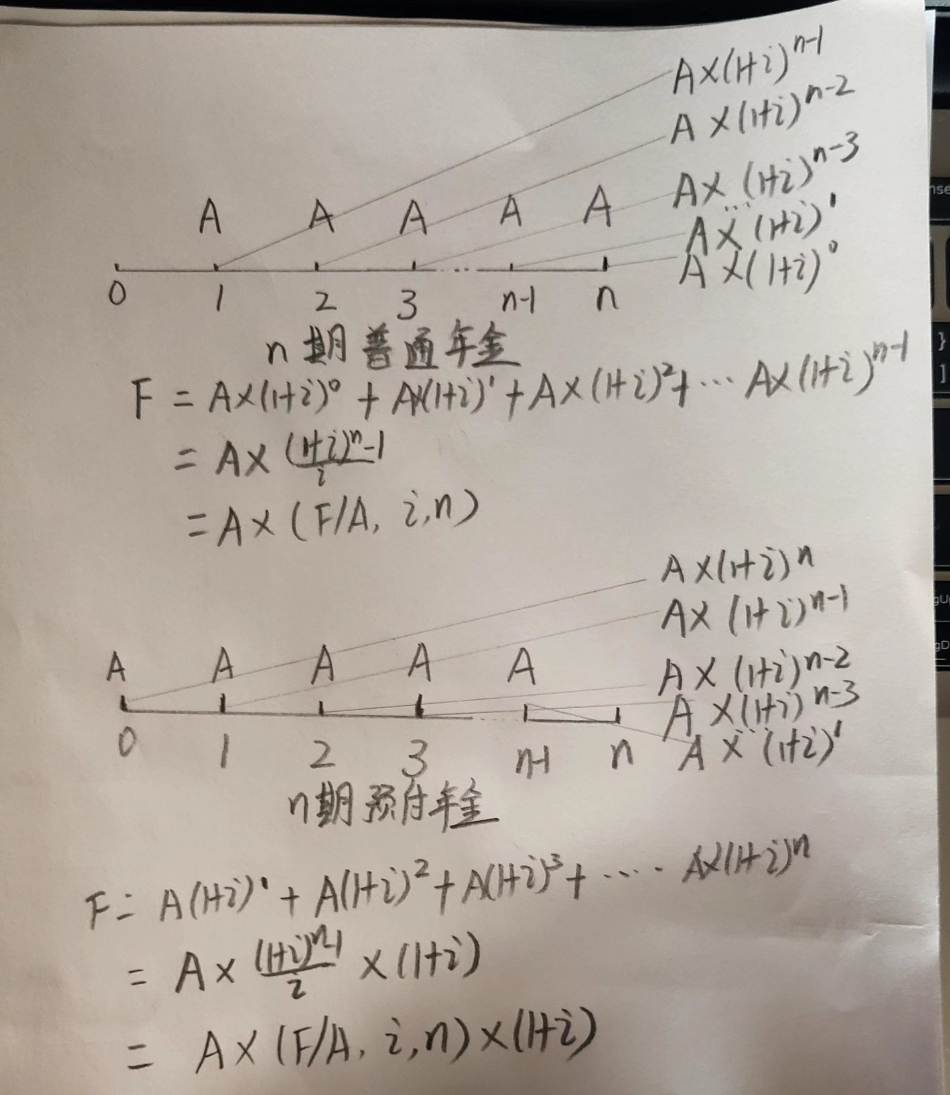 A×(1+i)^n-1
A×(1+i)^n-2
A× (1+i)^n-3
...
A A A A A
A× (1+i)^1
A×(1+i)^0
0 1 2 3 ... n-1 n
n期普通年金
F = A×(1+i)^0 + A×(1+i)^1 + A×(1+i)^2 + ... A×(1+i)^n-1
= A× (1+i)^n-1/i
= A×(F/A, i,n)
A×(1+i)^n
A× (1+i)^n-1
A A A A A
A× (1+i)^n-2
A×(1+i)^n-3
...
A× (1+i)^1
0 1 2 3 ... n-1 n
n期预付年金
F= A(1+i)^1 + A(1+i)^2 + A(1+i)^3 + .... A×(1+i)^n
= A× (1+i)^n-1/i ×(1+i)
= A×(F/A, i,n)×(1+i)